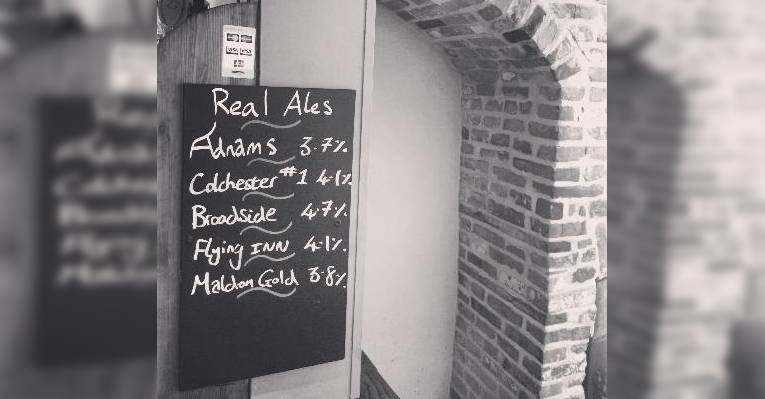 VISA
Real Ales
Adnams 3.7%.
Colchester #1 4.1%.
Broadside 4.7%.
Flying INN 4.1%.
Maldon Gold 3.8%.